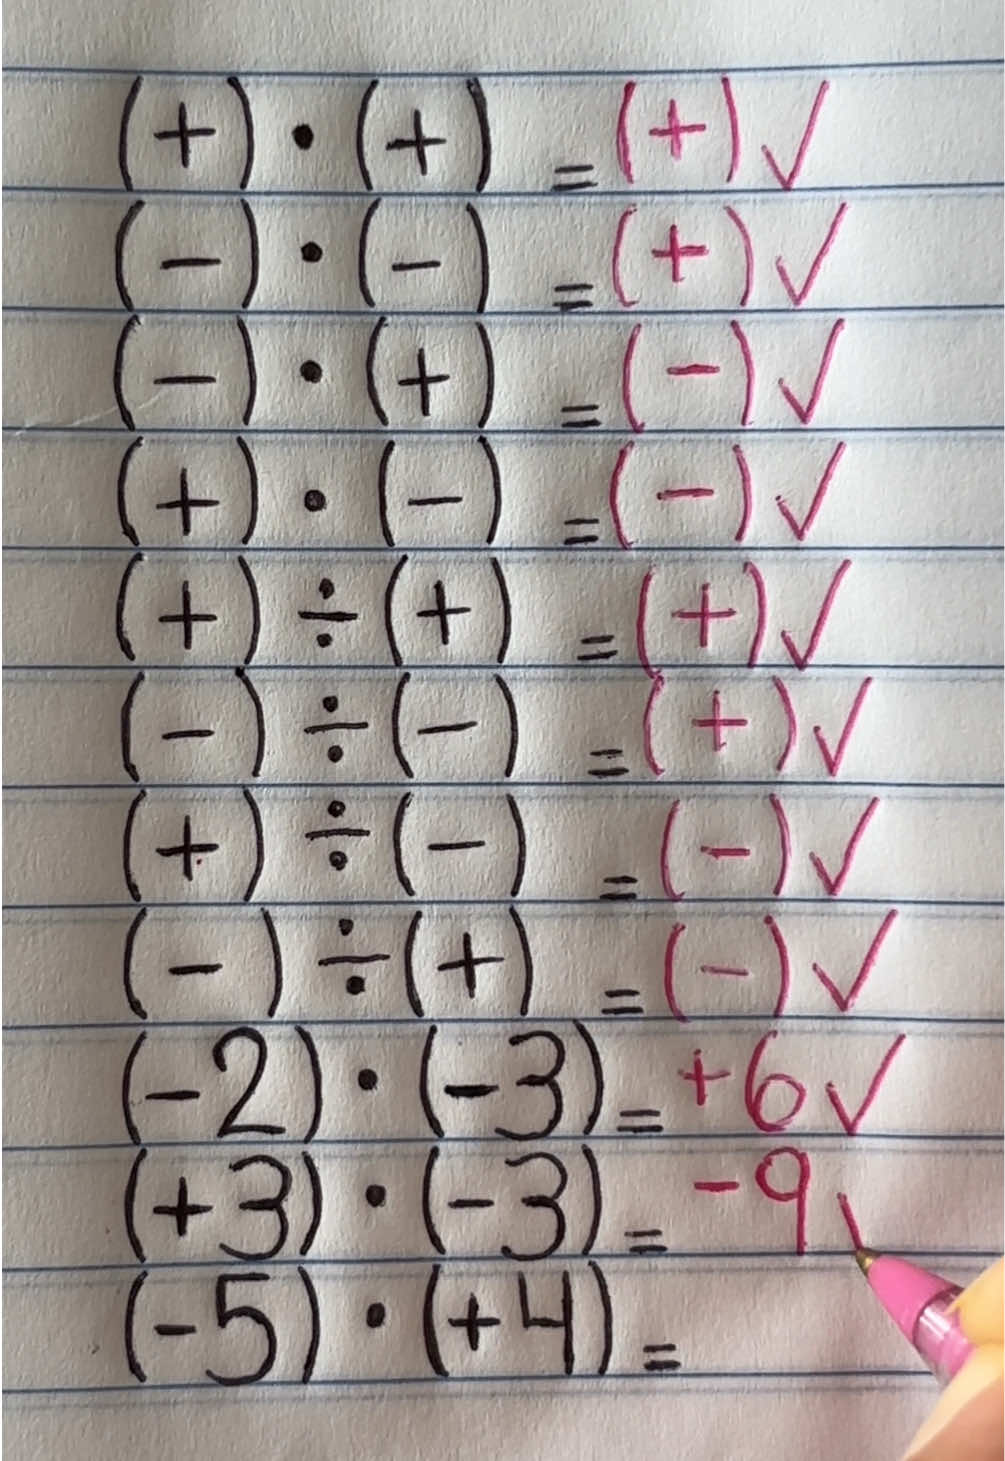 (+) · (+) = (+) ✓
(−) · (−) = (+) ✓
(−) · (+) = (−) ✓
(+) · (−) = (−) ✓
(+) ÷ (+) = (+) ✓
(−) ÷ (−) = (+) ✓
(+) ÷ (−) = (−) ✓
(−) ÷ (+) = (−) ✓
(−2) · (−3) = +6 ✓
(+3) · (−3) = −9
(−5) · (+4) =